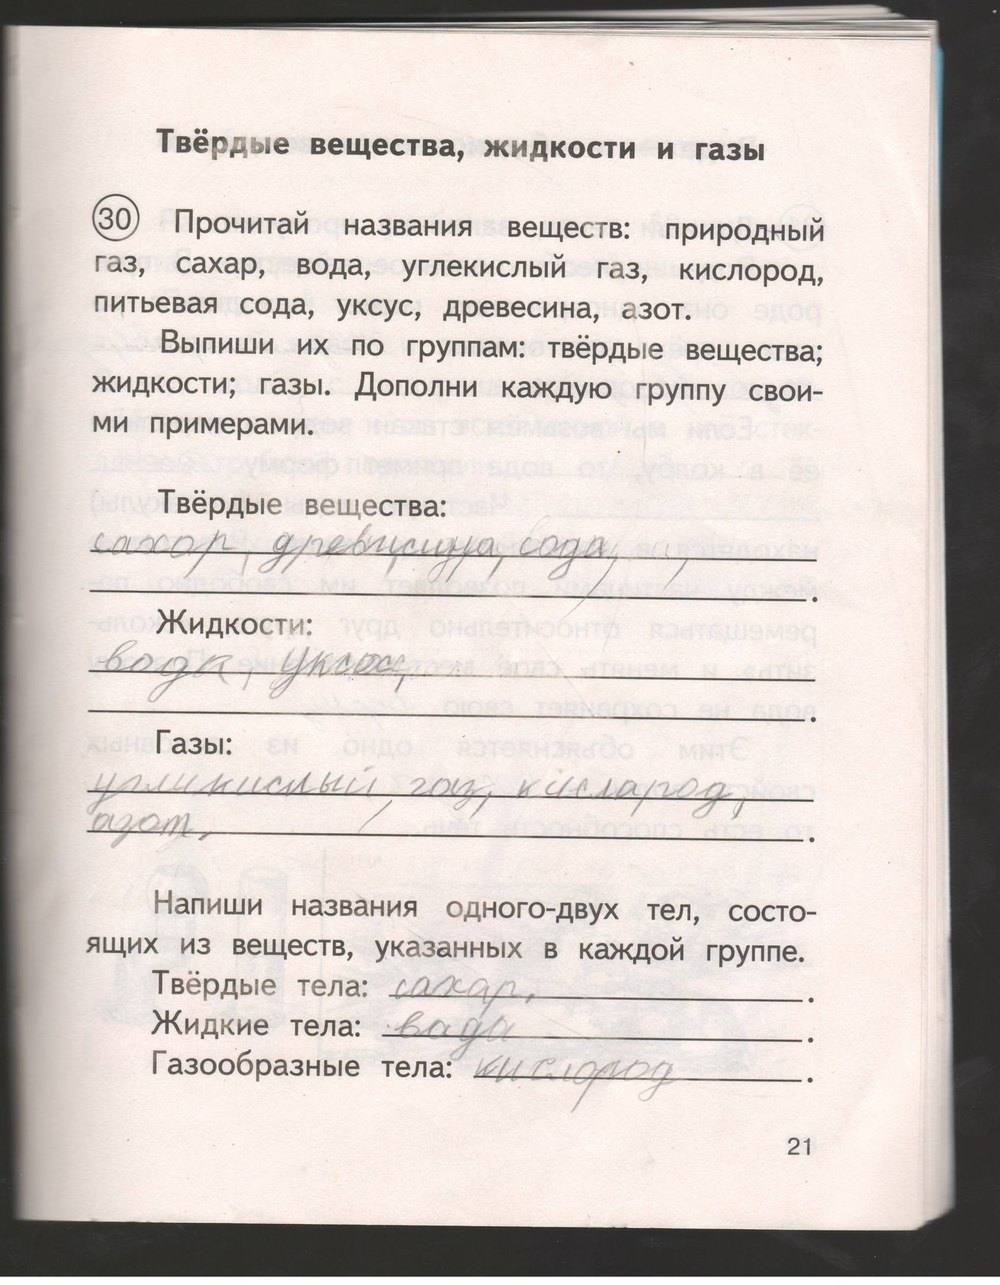 Твёрдые вещества, жидкости и газы
30 Прочитай названия веществ: природный
газ, сахар, вода, углекислый газ, кислород,
питьевая сода, уксус, древесина, азот.
Выпиши их по группам: твёрдые вещества;
жидкости; газы. Дополни каждую группу свои-
ми примерами.
Твёрдые вещества:
сахор, древисина, сода,
Жидкости:
вода, уксос,
Газы:
угликислый, газ, кисларод,
азот.
Напиши названия одного-двух тел, состо-
ящих из веществ, указанных в каждой группе.
Твёрдые тела: сахар.
Жидкие тела: вада
Газообразные тела: кислород
21